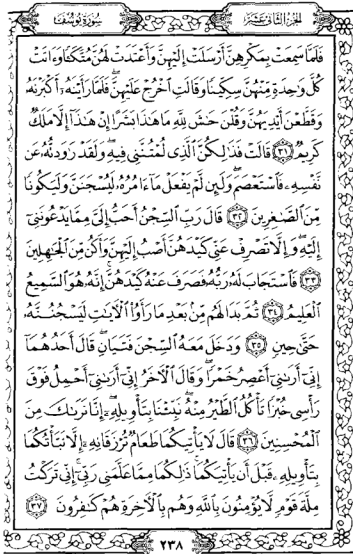 الجزء الثاني عشر
سورة يوسف
فَلَمَّا سَمِعَتْ بِمَكْرِهِنَّ أَرْسَلَتْ إِلَيْهِنَّ وَأَعْتَدَتْ لَهُنَّ مُتَّكَـًٔا وَءَاتَتْ
كُلَّ وَٰحِدَةٍ مِّنْهُنَّ سِكِّينًا وَقَالَتِ ٱخْرُجْ عَلَيْهِنَّ ۖ فَلَمَّا رَأَيْنَهُۥٓ أَكْبَرْنَهُۥ
وَقَطَّعْنَ أَيْدِيَهُنَّ وَقُلْنَ حَٰشَ لِلَّهِ مَا هَٰذَا بَشَرًا إِنْ هَٰذَآ إِلَّا مَلَكٌ
كَرِيمٌ ﴿٣١﴾ قَالَتْ فَذَٰلِكُنَّ ٱلَّذِى لُمْتُنَّنِى فِيهِ ۖ وَلَقَدْ رَٰوَدتُّهُۥ عَن
نَّفْسِهِۦ فَٱسْتَعْصَمَ ۖ وَلَئِن لَّمْ يَفْعَلْ مَآ ءَامُرُهُۥ لَيُسْجَنَنَّ وَلَيَكُونًا
مِّنَ ٱلصَّٰغِرِينَ ﴿٣٢﴾ قَالَ رَبِّ ٱلسِّجْنُ أَحَبُّ إِلَىَّ مِمَّا يَدْعُونَنِىٓ
إِلَيْهِ ۖ وَإِلَّا تَصْرِفْ عَنِّى كَيْدَهُنَّ أَصْبُ إِلَيْهِنَّ وَأَكُن مِّنَ ٱلْجَٰهِلِينَ
﴿٣٣﴾ فَٱسْتَجَابَ لَهُۥ رَبُّهُۥ فَصَرَفَ عَنْهُ كَيْدَهُنَّ ۚ إِنَّهُۥ هُوَ ٱلسَّمِيعُ
ٱلْعَلِيمُ ﴿٣٤﴾ ثُمَّ بَدَا لَهُم مِّنۢ بَعْدِ مَا رَأَوُا۟ ٱلْءَايَٰتِ لَيَسْجُنُنَّهُۥ
حَتَّىٰ حِينٍ ﴿٣٥﴾ وَدَخَلَ مَعَهُ ٱلسِّجْنَ فَتَيَانِ ۖ قَالَ أَحَدُهُمَآ
إِنِّىٓ أَرَىٰنِىٓ أَعْصِرُ خَمْرًا ۖ وَقَالَ ٱلْءَاخَرُ إِنِّىٓ أَرَىٰنِىٓ أَحْمِلُ فَوْقَ
رَأْسِى خُبْزًا تَأْكُلُ ٱلطَّيْرُ مِنْهُ ۖ نَبِّئْنَا بِتَأْوِيلِهِۦٓ ۖ إِنَّا نَرَىٰكَ مِنَ
ٱلْمُحْسِنِينَ ﴿٣٦﴾ قَالَ لَا يَأْتِيكُمَا طَعَامٌ تُرْزَقَانِهِۦٓ إِلَّا نَبَّأْتُكُمَا
بِتَأْوِيلِهِۦ قَبْلَ أَن يَأْتِيَكُمَا ۚ ذَٰلِكُمَا مِمَّا عَلَّمَنِى رَبِّىٓ ۚ إِنِّى تَرَكْتُ
مِلَّةَ قَوْمٍ لَّا يُؤْمِنُونَ بِٱللَّهِ وَهُم بِٱلْءَاخِرَةِ هُمْ كَٰفِرُونَ ﴿٣٧﴾
٢٣٨